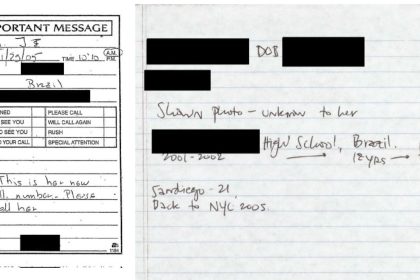 PORTANT MESSAGE
J.E
1/25/05 TIME 10:10 A.M. P.M.
Brazil
NED PLEASE CALL
SEE YOU WILL CALL AGAIN
O SEE YOU RUSH
YOUR CALL SPECIAL ATTENTION
This is her new
number. Please
all her
1184
DOB
Shown photo - unknown to her
High School, Brazil.
2001-2002 12 yrs →
Sandiego - 21
Back to NYC 2005.